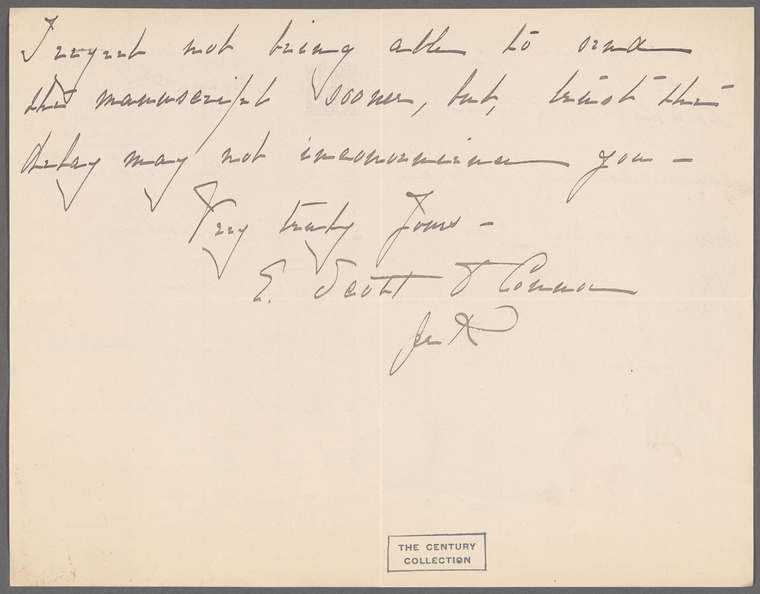 I regret not being able to send
the manuscript sooner, but, trust the
delay may not inconvenience you -
Very truly Yours -
E. Scott O'Connor
THE CENTURY
COLLECTION